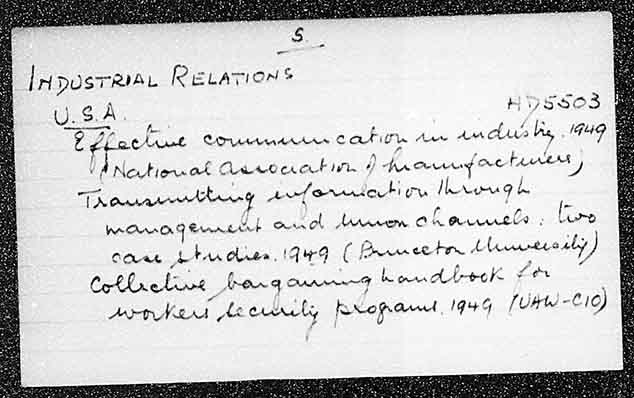 S
INDUSTRIAL RELATIONS
U.S.A.
HD5503
Effective communication in industry. 1949
(National Association of Manufacturers)
Transmitting information through
management and union channels: two
case studies. 1949 (Princeton University)
Collective bargaining handbook for
workers security programs. 1949 (UAW-CIO)